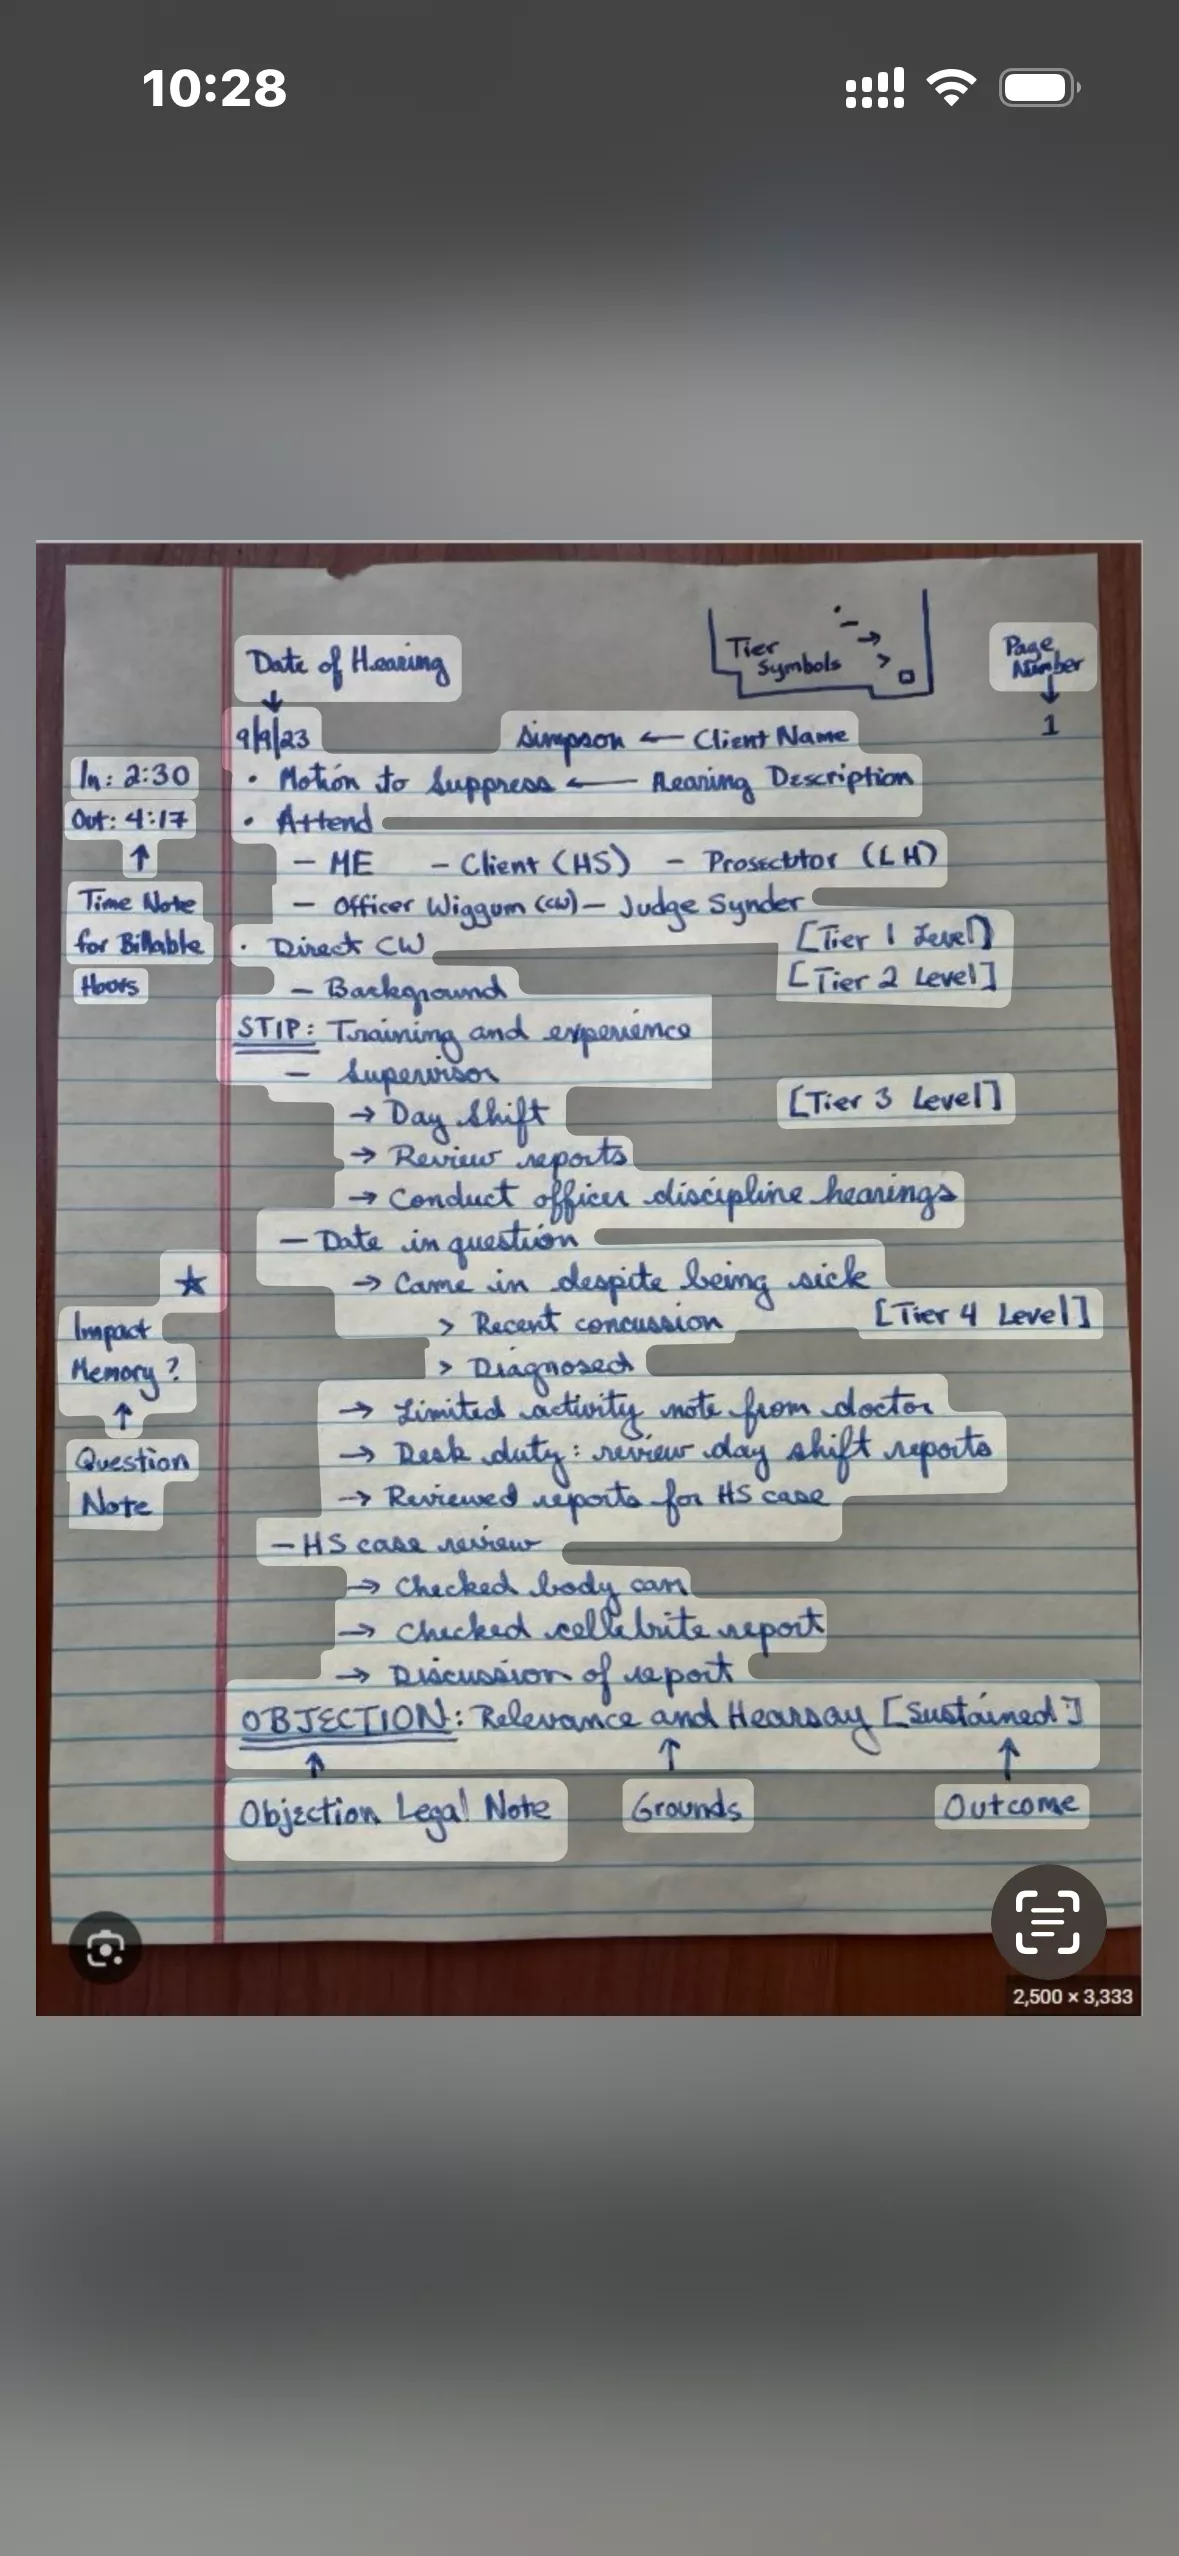 10:28
Date of Hearing
Tier
Symbols
Page
Number
9/9/23
Simpson ← Client Name
1
In: 2:30
• Motion to Suppress ← Hearing Description
Out: 4:17
• Attend
— ME — Client (HS) — Prosecutor (LH)
Time Note
— Officer Wiggum (CW) — Judge Synder
for Billable
• Direct CW
[Tier 1 Level]
Hours
— Background
[Tier 2 Level]
STIP: Training and experience
— Supervisor
→ Day Shift
[Tier 3 Level]
→ Review reports
→ Conduct officer discipline hearings
— Date in question
★
→ Came in despite being sick
Impact
> Recent concussion
[Tier 4 Level]
Memory?
> Diagnosed
→ Limited activity note from doctor
Question
→ Desk duty: review day shift reports
Note
→ Reviewed reports for HS case
— HS case review
→ Checked body cam
→ Checked cellebrite report
→ Discussion of report
OBJECTION: Relevance and Hearsay [Sustained]
Objection Legal Note
Grounds
Outcome
2,500 × 3,333